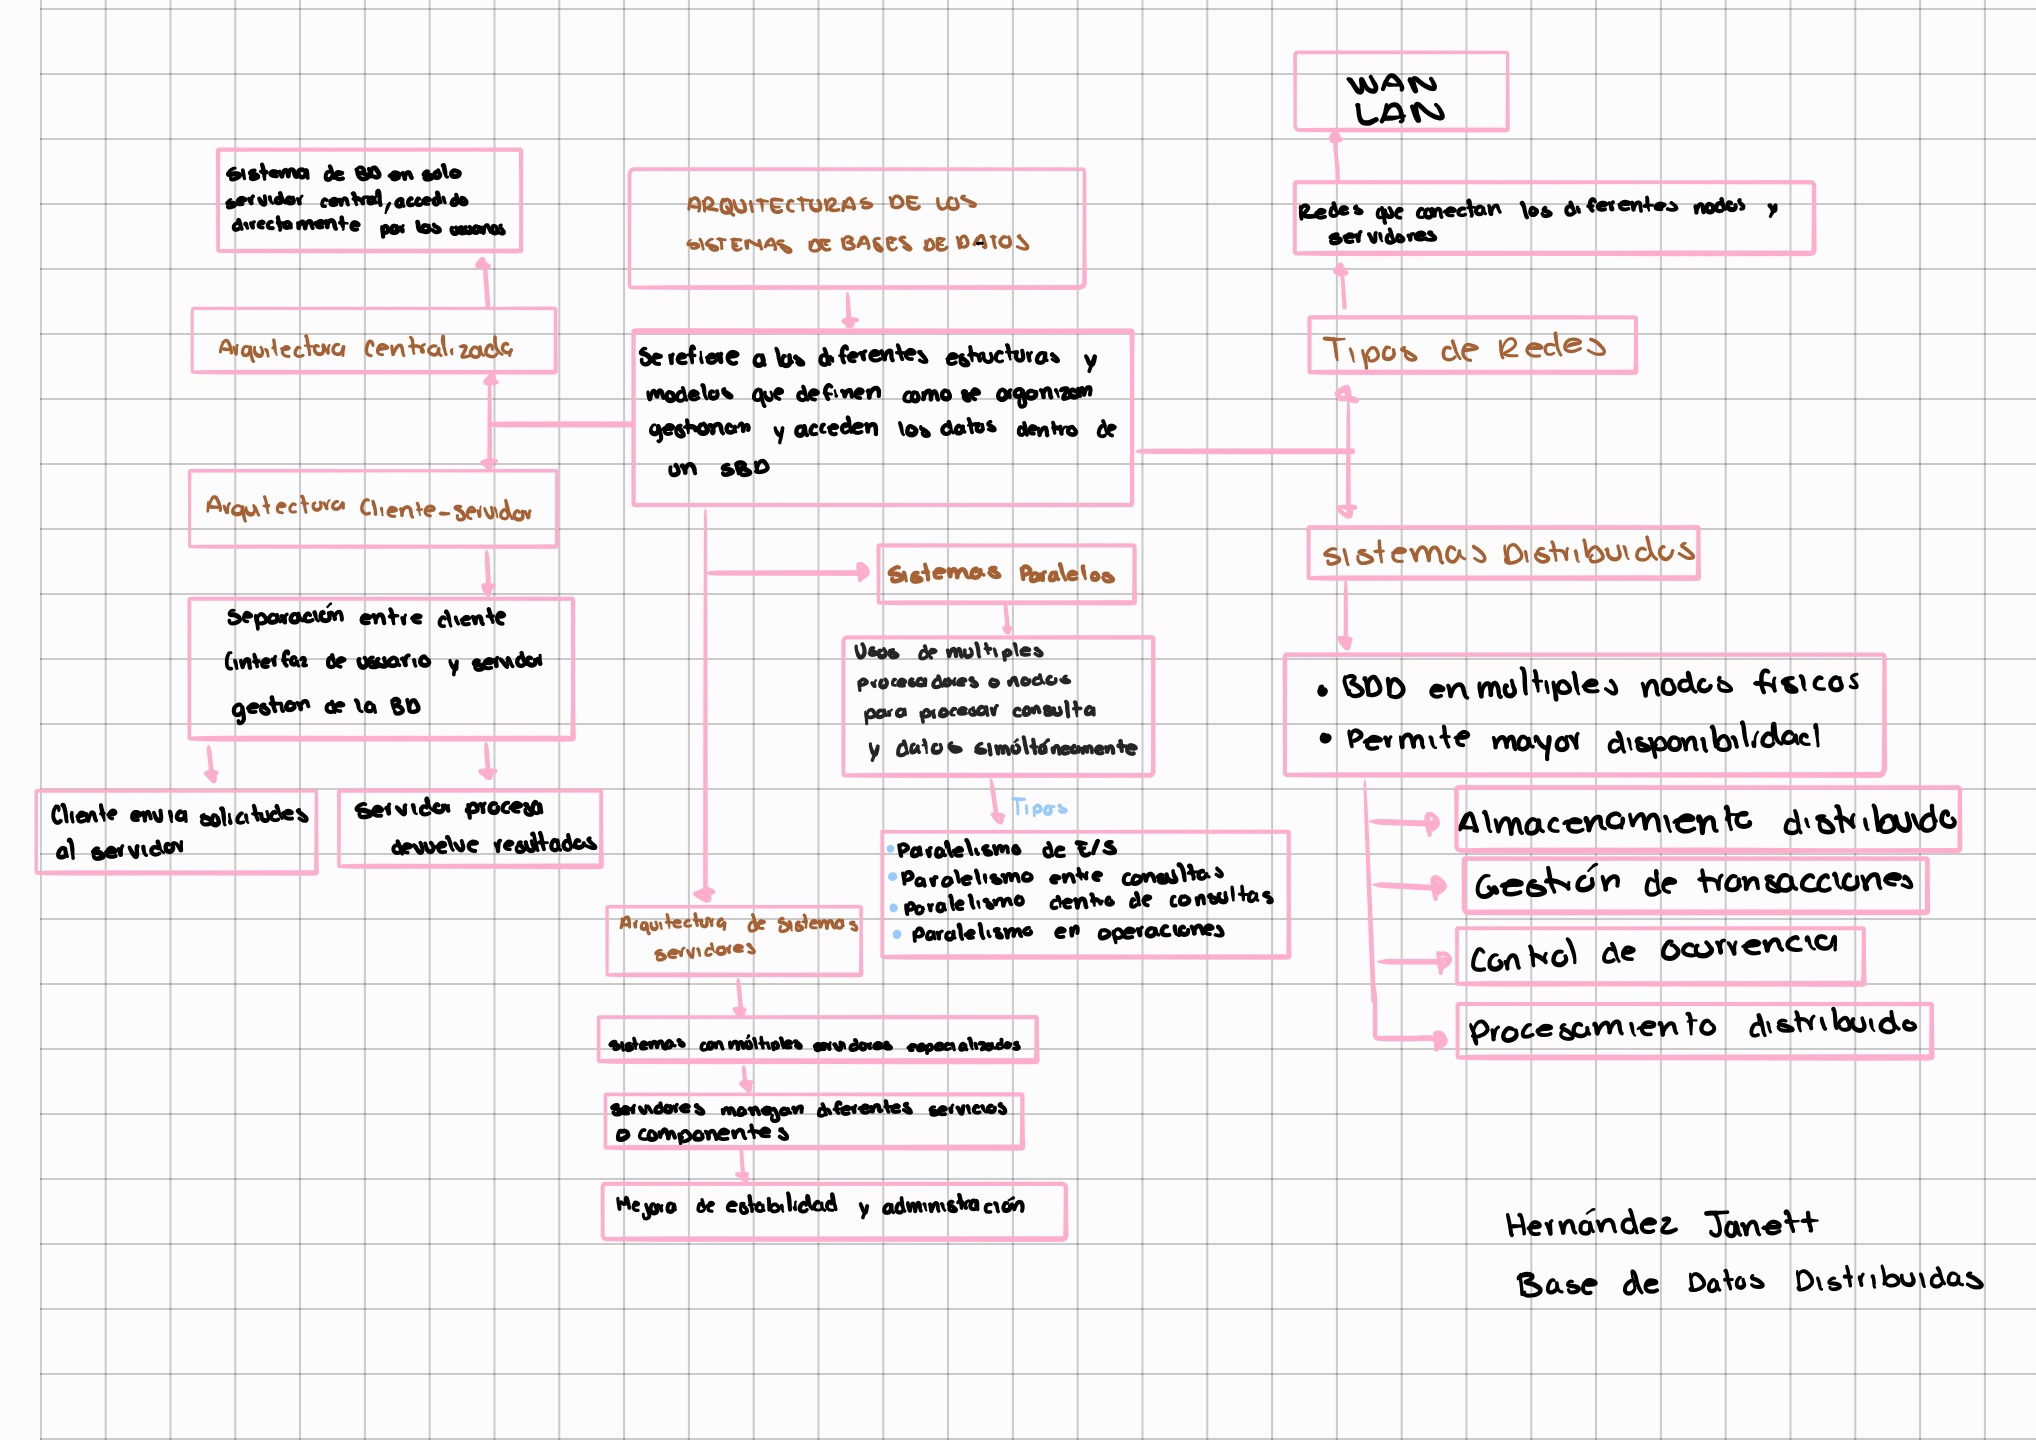 ARQUITECTURAS DE LOS
SISTEMAS DE BASES DE DATOS
Se refiere a las diferentes estructuras y
modelos que definen como se organizan
gestionan y acceden los datos dentro de
un SBD
Sistema de BD en solo
servidor central, accedido
directamente por los usuarios
Arquitectura Centralizada
Arquitectura Cliente-servidor
Separación entre cliente
(interfaz de usuario y servidor
gestion de la BD
Cliente envia solicitudes
al servidor
Servidor procesa
devuelve resultados
Sistemas Paralelos
Usos de multiples
procesadores o nodos
para procesar consulta
y datos simúltáneamente
Tipos
• Paralelismo de E/S
• Paralelismo entre consultas
• Paralelismo dentro de consultas
• Paralelismo en operaciones
Arquitectura de Sistemas
servidores
Sistemas con múltiples servidores especializados
Servidores manejan diferentes servicios
o componentes
Mejora de estabilidad y administración
WAN
LAN
Redes que conectan los diferentes nodos y
servidores
Tipos de Redes
Sistemas Distribuidos
• BDD en multiples nodos fisicos
• Permite mayor disponibilidad
Almacenamiento distribuido
Gestión de transacciones
Control de ocurrencia
Procesamiento distribuido
Hernández Janett
Base de Datos Distribuidas